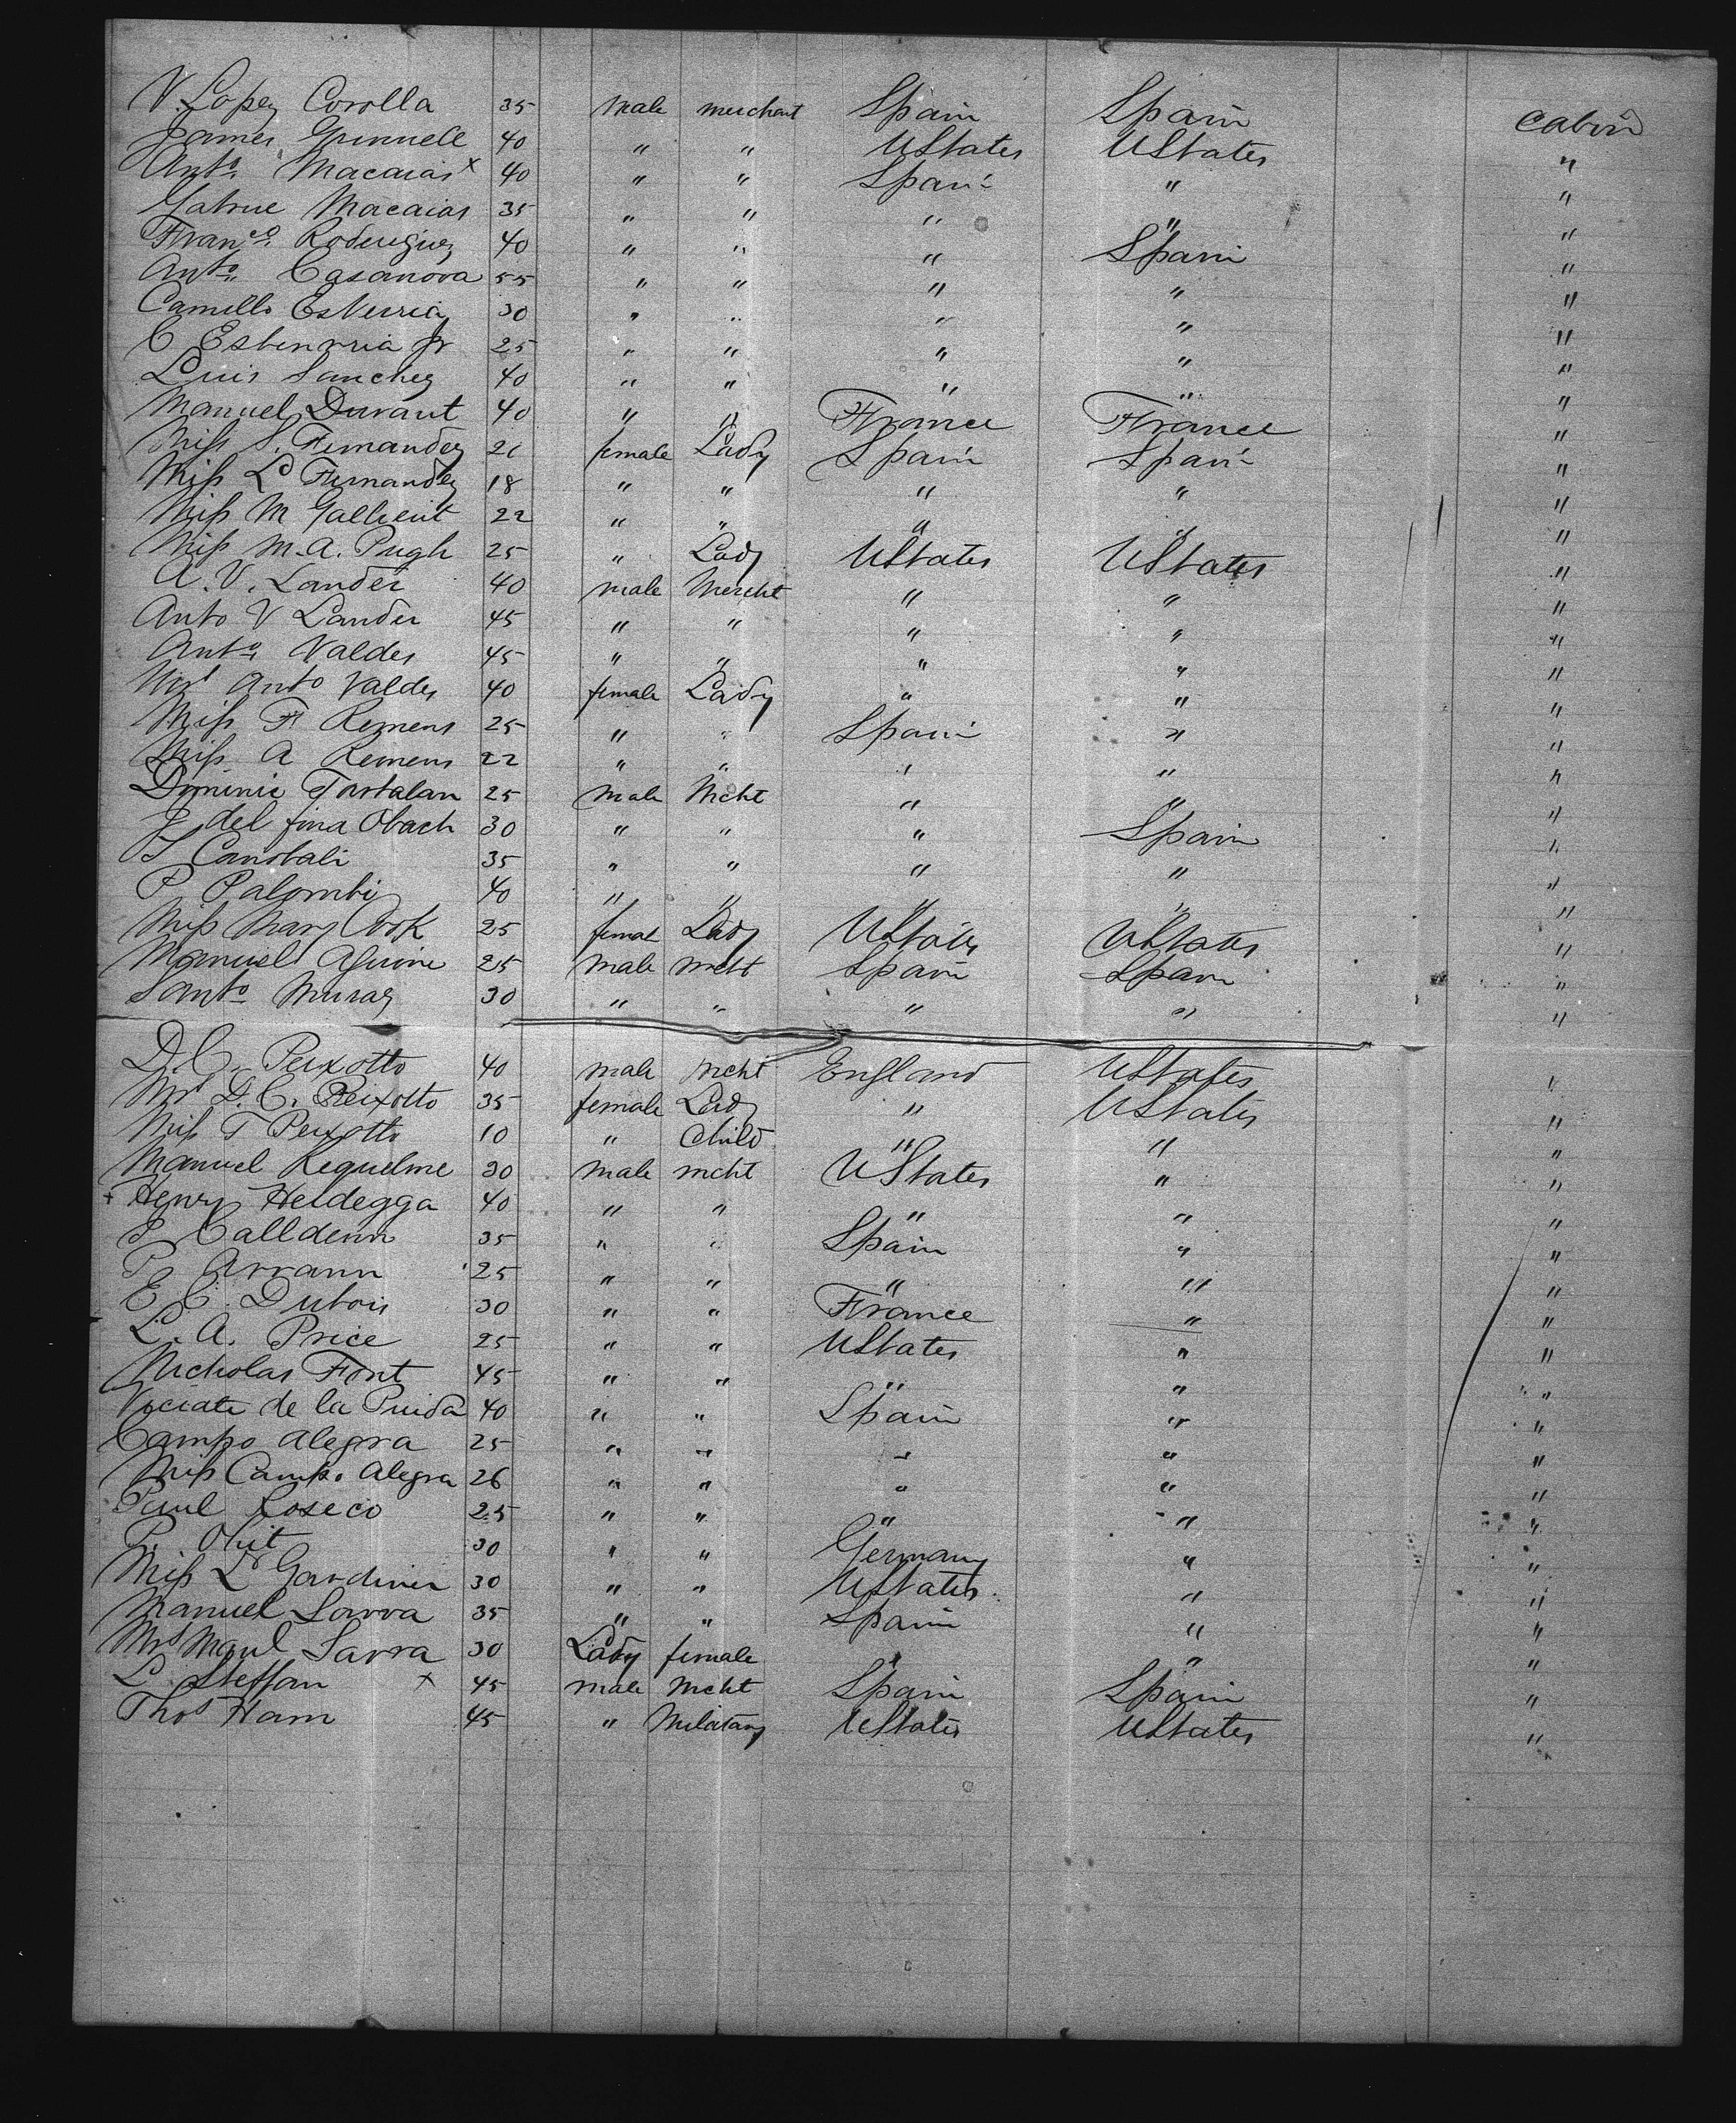 V. Lopez Corolla 35 male merchant Spain Spain Cabin
James Grinnell 40 " " UStates UStates "
Anto. Macaias x 40 " " Spain " "
Gabriel Macaias 35 " " " " "
Franco. Roderiguez 40 " " " Spain "
Anto. Casanova 55 " " " " "
Camillo 30 " " " " "
C Jr 25 " " " " "
Luis Sanchez 40 " " " " "
Manuel Durant 40 " " France France "
Miss S. Fernandez 21 female Lady Spain Spain "
Miss L Fernandez 18 " " " " "
Miss M 22 " " " " "
Miss M.A. Pugh 25 " Lady UStates UStates "
A. V. Lander 40 male Mercht " " "
Anto V Lander 45 " " " " "
Anto. Valdes 45 " " " " "
Mrs Anto Valdes 40 female Lady " " "
Miss F Remens 25 " " Spain " "
Miss A Remens 22 " " " " "
Dominic 25 male Mcht " " "
J del fina Obach 30 " " " Spain "
35 " " " " "
P Palombi 40 " " " " "
Miss Mary Cook 25 femal Lady UStates UStates "
Manuel 25 male mcht Spain Spain "
Santo 30 " " " " "
D. C. Peixotto 40 male mcht England UStates "
Mrs D. C. Peixotto 35 female Lady " UStates "
Miss T Peixotto 10 " Child " " "
Manuel Requelme 30 male mcht UStates " "
+ Henry Heidegga 40 " " " " "
P Calldenn 35 " " Spain " "
P Arrann 25 " " " " "
E C. Dubois 30 " " France " "
L. A. Price 25 " " UStates " "
Nicholas Font 45 " " " " "
de la 40 " " Spain " "
Campo Alegra 25 " " " " "
Miss Campo Alegra 26 " " " " "
Paul Roseco 25 " " " " "
P. Ohit 30 " " Germany " "
Miss L Gardiner 30 " " UStates " "
Manuel Sarra 35 " " Spain " "
Mrs Manl Sarra 30 Lady female " " "
L. Steffan x 45 male Mcht Spain Spain "
Thos Ham 45 " Military UStates UStates "